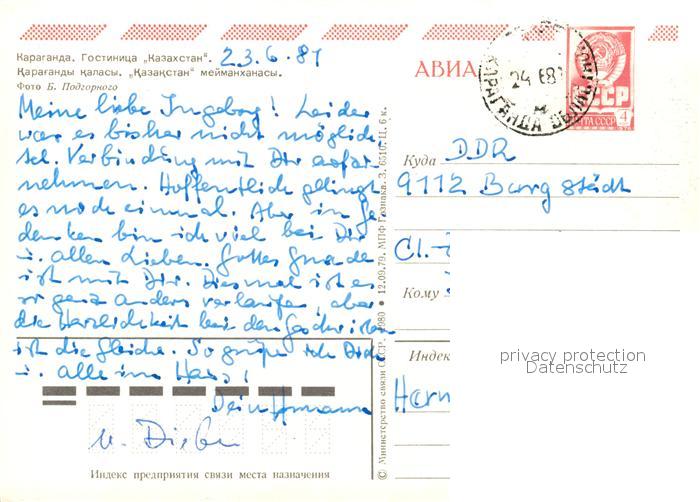 Караганда. Гостиница „Казахстан“. 23.6.81
Қарағанды қаласы. „Қазақстан“ мейманханасы.
Фото Б. Подгорного
АВИА
КАРАГАНДА
24
СССР
ПОЧТА СССР
4
Meine liebe Ingeborg! Leider
war es bisher nicht möglich
tel. Verbindung mit Dir aufzu-
nehmen. Hoffentlich gelingt
es noch einmal. Aber in Ge-
danken bin ich viel bei Dir
u. allen Lieben. Gottes Gnade
ist mit Dir. Diesmal ist es
ganz anders verlaufen, aber
die Herzlichkeit bei den Geschwistern
ist die gleiche. So grüße ich Dich
u. alle im Haus!
Dein Hermann
u.
Индекс предприятия связи места назначения
© Министерство связи СССР. 1980 • 12.09.79. МПФ Гознака. З. 6510. Ц. 6 к.
Куда DDR
9112 Burgstädt
Кому
Индекс
privacy protection
Datenschutz